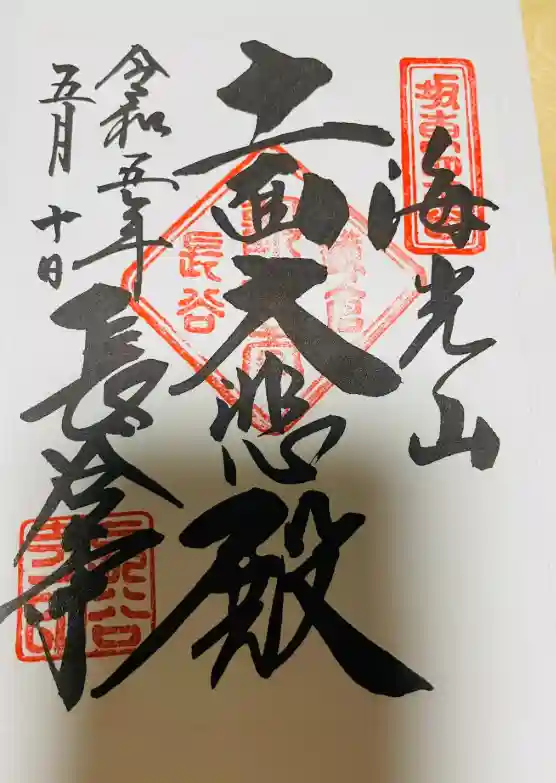 海光山
十一面大悲殿
長谷寺
令和五年
五月 十日
坂東四番
長谷